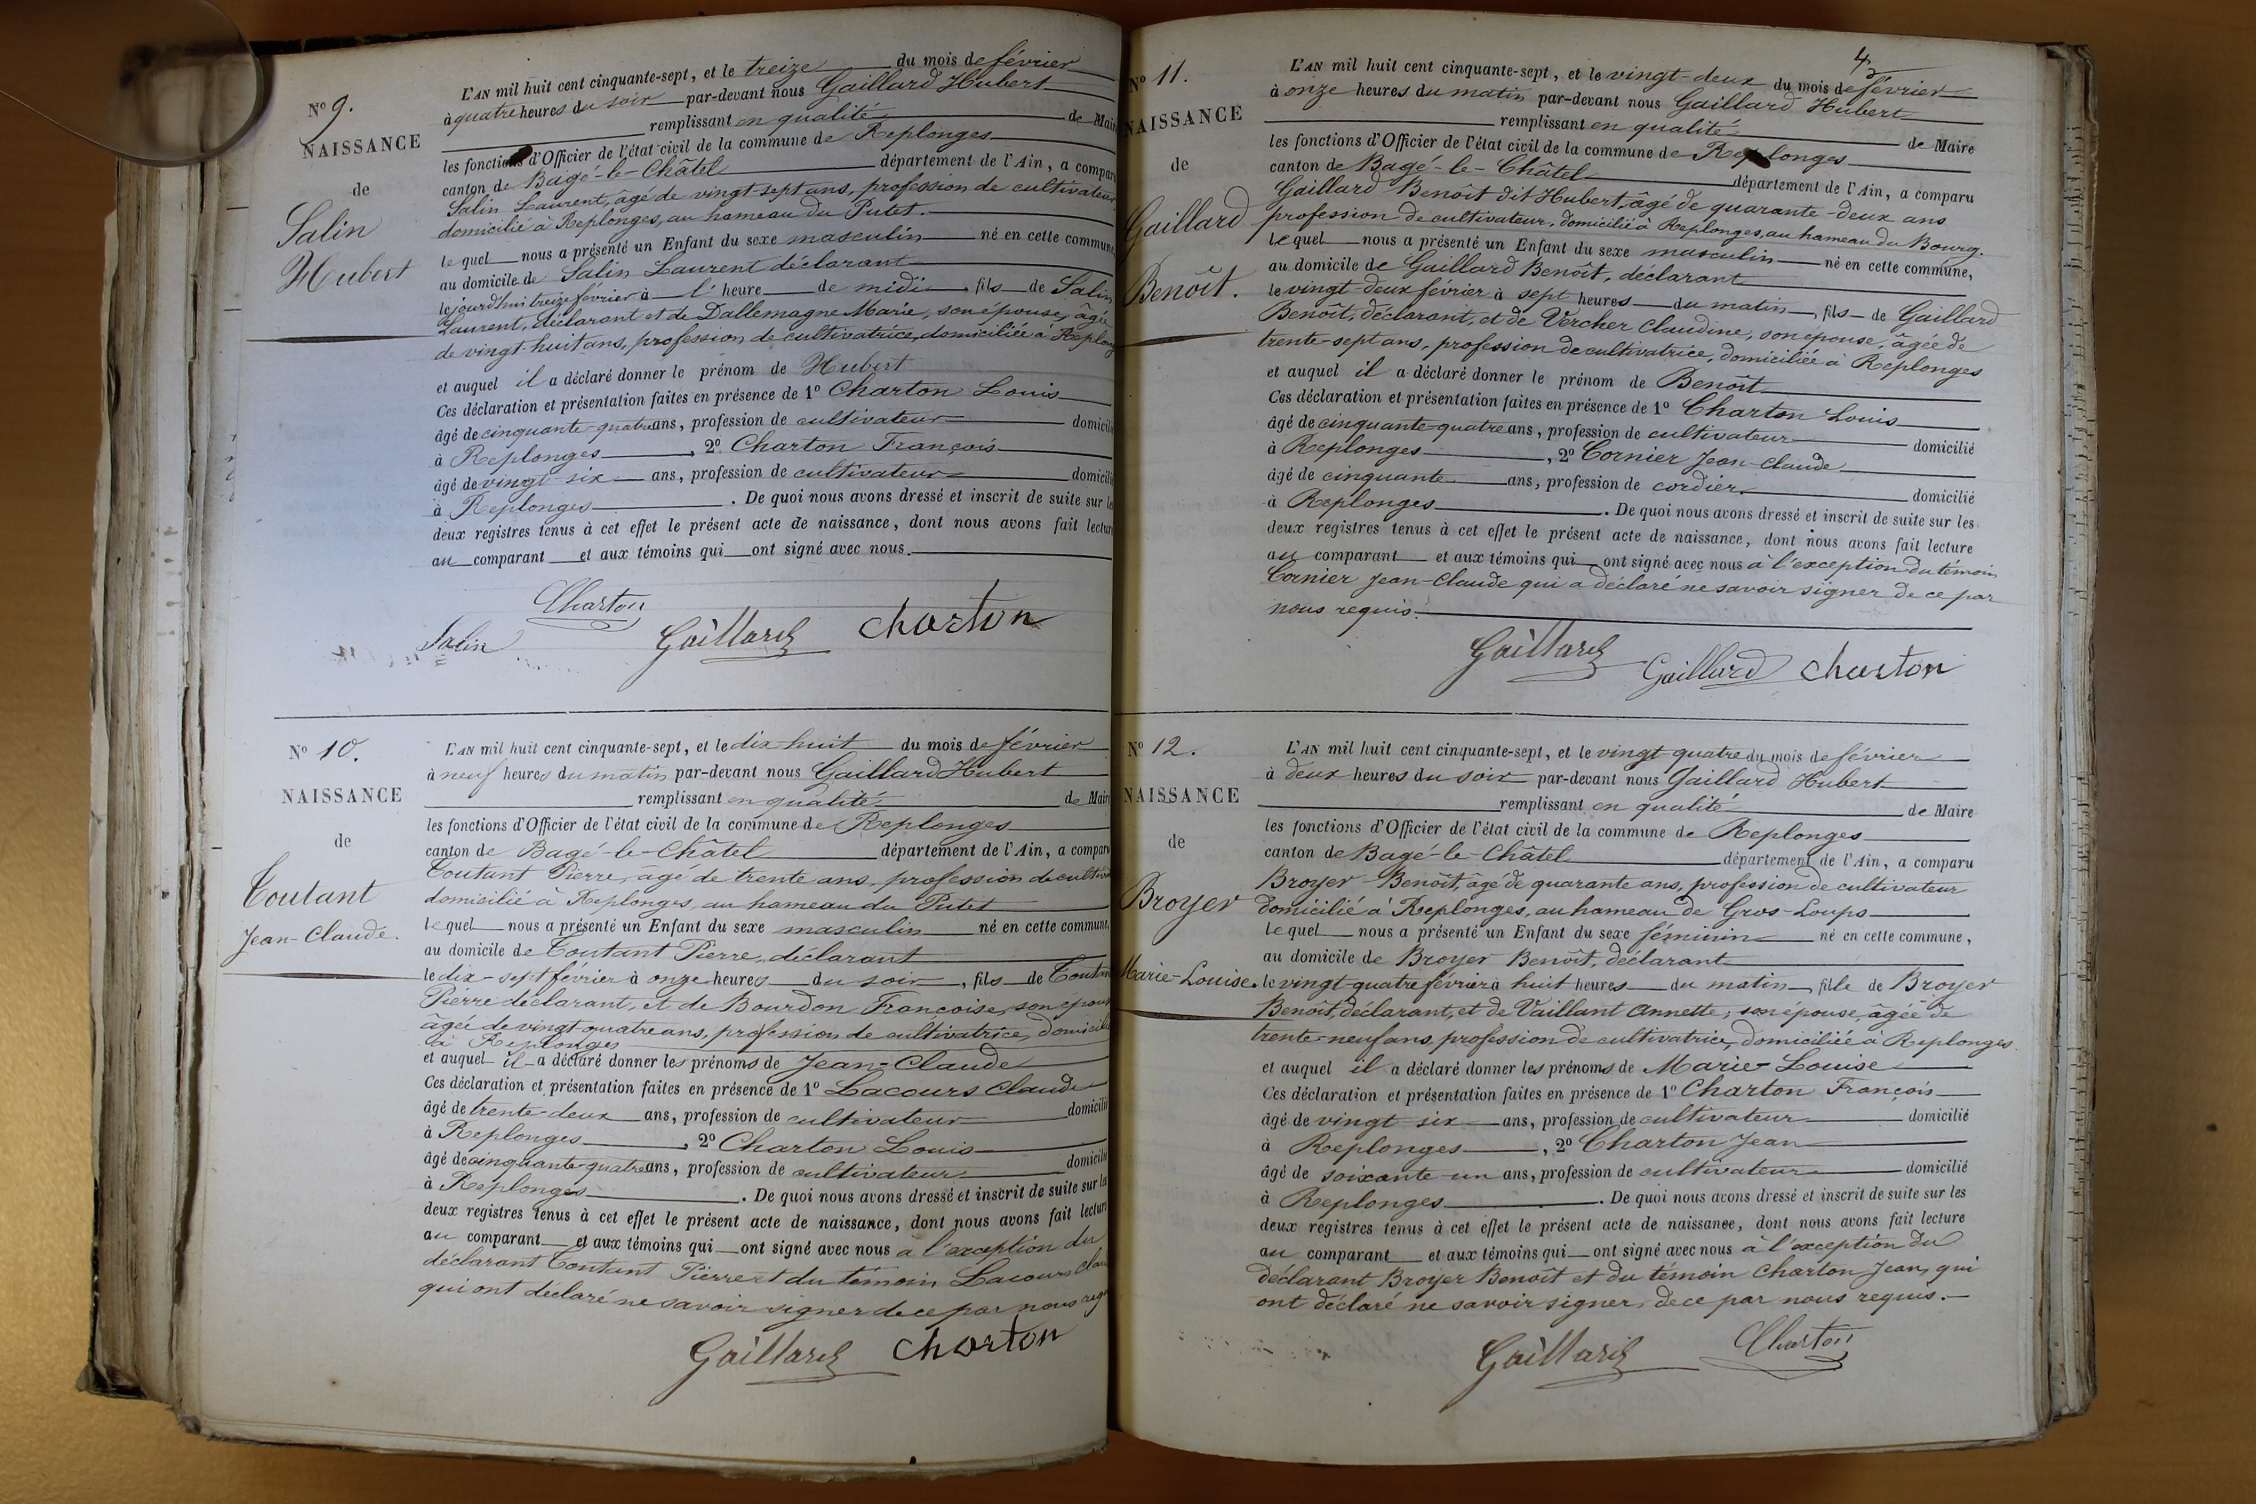 N° 9.
NAISSANCE
de
Salin
Hubert
L'AN mil huit cent cinquante-sept, et le treize du mois de février
à quatre heures du soir par-devant nous Gaillard Hubert
remplissant en qualité de Mair
les fonctions d'Officier de l'état civil de la commune de Replonges
canton de Bagé-le-Châtel département de l'Ain, a compar
Salin Laurent, âgé de vingt-sept ans, profession de cultivateur
domicilié à Replonges, au hameau du Putet.
lequel nous a présenté un Enfant du sexe masculin né en cette commune
au domicile de Salin Laurent déclarant
le jourd'hui treize février à l' heure de midi fils de Salin
Laurent, déclarant et de Dallemagne Marie, son épouse, âgée
de vingt-huit ans, profession de cultivatrice, domiciliée à Replong
et auquel il a déclaré donner le prénom de Hubert
Ces déclaration et présentation faites en présence de 1° Charton Louis
âgé de cinquante-quatre ans, profession de cultivateur domicili
à Replonges, 2° Charton François
âgé de vingt-six ans, profession de cultivateur domicili
à Replonges. De quoi nous avons dressé et inscrit de suite sur le
deux registres tenus à cet effet le présent acte de naissance, dont nous avons fait lectur
au comparant et aux témoins qui ont signé avec nous.
Charton
Salin Gaillard Charton
N° 10.
NAISSANCE
de
Toutant
Jean-Claude.
L'AN mil huit cent cinquante-sept, et le dix-huit du mois de février
à neuf heures du matin par-devant nous Gaillard Hubert
remplissant en qualité de Mair
les fonctions d'Officier de l'état civil de la commune de Replonges
canton de Bagé-le-Châtel département de l'Ain, a comparu
Toutant Pierre, âgé de trente ans, profession de cultiva
domicilié à Replonges, au hameau du Putet
lequel nous a présenté un Enfant du sexe masculin né en cette commune,
au domicile de Toutant Pierre, déclarant
le dix-sept février à onze heures du soir, fils de Toutan
Pierre déclarant, et de Bourdon Françoise, son épous
âgée de vingt-quatre ans, profession de cultivatrice, domicili
à Replonges
et auquel il a déclaré donner les prénoms de Jean-Claude
Ces déclaration et présentation faites en présence de 1° Lacours Claude
âgé de trente-deux ans, profession de cultivateur domicilié
à Replonges, 2° Charton Louis
âgé de cinquante-quatre ans, profession de cultivateur domicilié
à Replonges. De quoi nous avons dressé et inscrit de suite sur les
deux registres tenus à cet effet le présent acte de naissance, dont nous avons fait lecture
au comparant et aux témoins qui ont signé avec nous à l'exception du
déclarant Toutant Pierre et du témoin Lacours Clau
qui ont déclaré ne savoir signer de ce par nous requ
Gaillard Charton
4
N° 11.
NAISSANCE
de
Gaillard
Benoît.
L'AN mil huit cent cinquante-sept, et le vingt-deux du mois de février
à onze heures du matin par-devant nous Gaillard Hubert
remplissant en qualité de Maire
les fonctions d'Officier de l'état civil de la commune de Replonges
canton de Bagé-le-Châtel département de l'Ain, a comparu
Gaillard Benoît dit Hubert, âgé de quarante-deux ans
profession de cultivateur, domicilié à Replonges, au hameau du Bourg.
lequel nous a présenté un Enfant du sexe masculin né en cette commune,
au domicile de Gaillard Benoît, déclarant
le vingt-deux février à sept heures du matin, fils de Gaillard
Benoît, déclarant, et de Vercher Claudine, son épouse, âgée de
trente-sept ans, profession de cultivatrice, domiciliée à Replonges
et auquel il a déclaré donner le prénom de Benoît
Ces déclaration et présentation faites en présence de 1° Charton Louis
âgé de cinquante-quatre ans, profession de cultivateur domicilié
à Replonges, 2° Cornier Jean-Claude
âgé de cinquante ans, profession de cordier domicilié
à Replonges. De quoi nous avons dressé et inscrit de suite sur les
deux registres tenus à cet effet le présent acte de naissance, dont nous avons fait lecture
au comparant et aux témoins qui ont signé avec nous à l'exception du témoin
Cornier Jean-Claude qui a déclaré ne savoir signer de ce par
nous requis.
Gaillard Gaillard Charton
N° 12.
NAISSANCE
de
Broyer
Marie-Louise.
L'AN mil huit cent cinquante-sept, et le vingt quatre du mois de février
à deux heures du soir par-devant nous Gaillard Hubert
remplissant en qualité de Maire
les fonctions d'Officier de l'état civil de la commune de Replonges
canton de Bagé-le-Châtel département de l'Ain, a comparu
Broyer Benoît, âgé de quarante ans, profession de cultivateur
domicilié à Replonges, au hameau de Gros-Loups
lequel nous a présenté un Enfant du sexe féminin né en cette commune,
au domicile de Broyer Benoît, déclarant
le vingt-quatre février à huit heures du matin, fille de Broyer
Benoît, déclarant, et de Vaillant Annette, son épouse, âgée de
trente-neuf ans, profession de cultivatrice, domiciliée à Replonges.
et auquel il a déclaré donner les prénoms de Marie-Louise
Ces déclaration et présentation faites en présence de 1° Charton François
âgé de vingt six ans, profession de cultivateur domicilié
à Replonges, 2° Charton Jean
âgé de soixante-un ans, profession de cultivateur domicilié
à Replonges. De quoi nous avons dressé et inscrit de suite sur les
deux registres tenus à cet effet le présent acte de naissance, dont nous avons fait lecture
au comparant et aux témoins qui ont signé avec nous à l'exception du
déclarant Broyer Benoît et du témoin Charton Jean, qui
ont déclaré ne savoir signer, de ce par nous requis.
Gaillard Charton